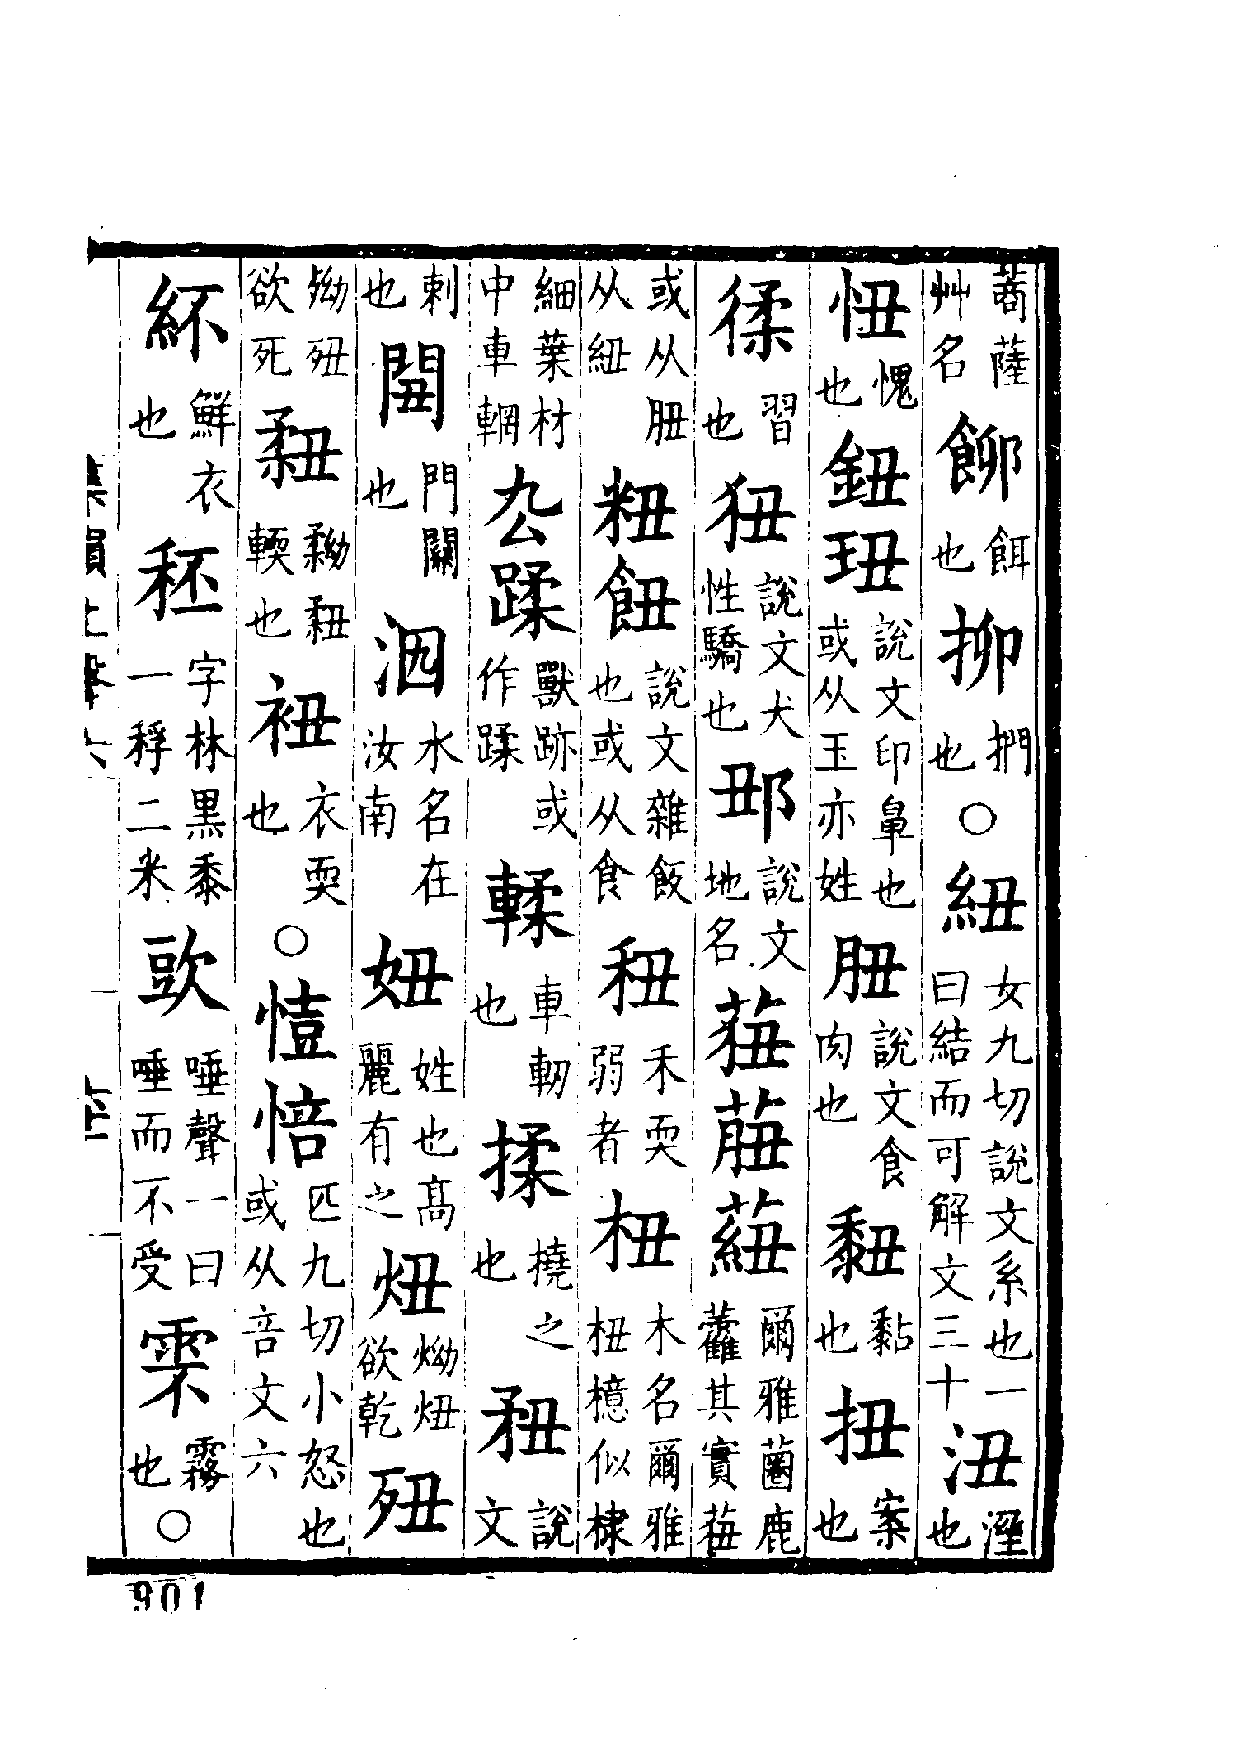 蔏蕯艸名䭷餌也抑捫也○紐女九切說文系也一曰結而可解文三十沑溼也
忸愧也鈕玨說文印鼻也或从玉亦姓䏔說文食肉也䵑黏也扭案也
徖習也狃說文犬性驕也邢說文地名莥䒖䓯爾雅蔨鹿藿其實莥
或从䏔从紐粈飿說文雜飯也或从食䄬禾耎弱者杻木名爾雅杻檍似棣
細葉材中車輞厹蹂獸跡或作蹂輮車軔也揉撓之也䂇說文
刺也䦞門關也泅水名在汝南妞姓也高麗有之炄㶭炄欲乾㱙
㱙欲死䂇耎也衵衣耎也○㤱㤧匹九切小怒也或从咅文六
紑鮮衣也秠字林黑黍一稃二米㰯唾聲一曰唾而不受䨎霧也○
集韻上聲六
901